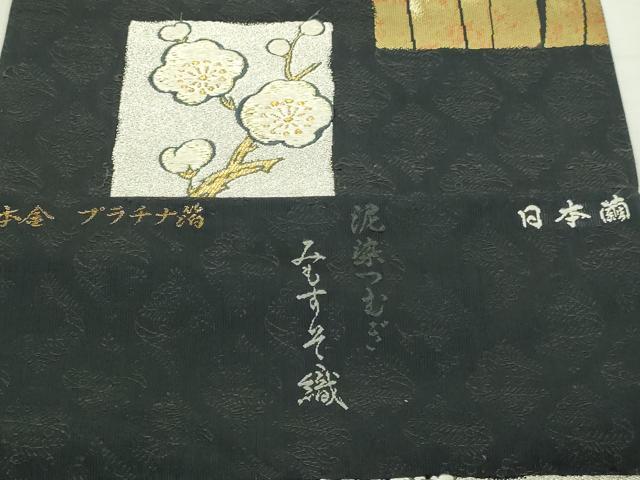 本金 プラチナ箔
日本繭
泥染つむぎ
みもすそ織